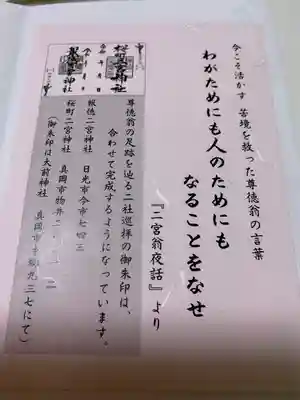 今こそ活かす 苦境を救った尊徳翁の言葉
わがためにも人のためにも
なることをなせ
『二宮翁夜話』より
尊徳翁の足跡を辿る二社巡拝の御朱印は、
合わせて完成するようになっています。
報徳二宮神社 日光市今市七四三
桜町二宮神社 真岡市物井二
(御朱印は大前神社 真岡市東郷九三七にて)
桜町二宮神社
報徳二宮神社